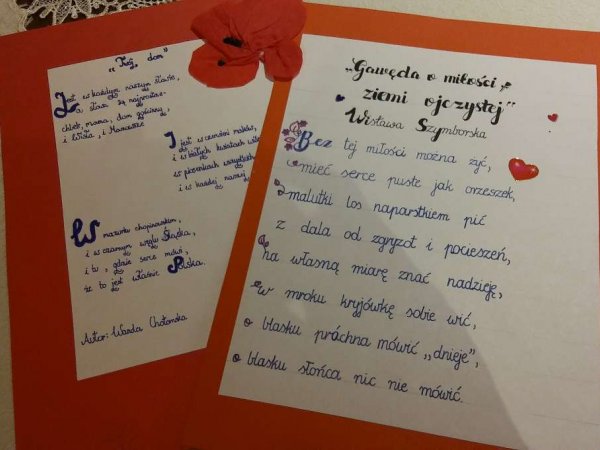 „Twój dom"
Jest w każdym naszym słowie,
a słowa są najprostsze -
chleb, mama, dom gościnny,
i Wisła, i Mazowsze
I jest w czerwieni maków,
i w białych kwiatach
i w piosenkach wszystkich
i w każdej naszej
W mazurku chopinowskim,
i w czarnym węglu Śląska,
i tu, gdzie serce mówi,
że to jest właśnie Polska.
Autor: Wanda Chotomska
„Gawęda o miłości
ziemi ojczystej"
Wisława Szymborska
Bez tej miłości można żyć,
mieć serce puste jak orzeszek,
malutki los naparstkiem pić
z dala od zgryzot i pocieszeń,
na własną miarę znać nadzieję,
w mroku kryjówkę sobie wić,
o blasku próchna mówić „dnieje",
o blasku słońca nic nie mówić.